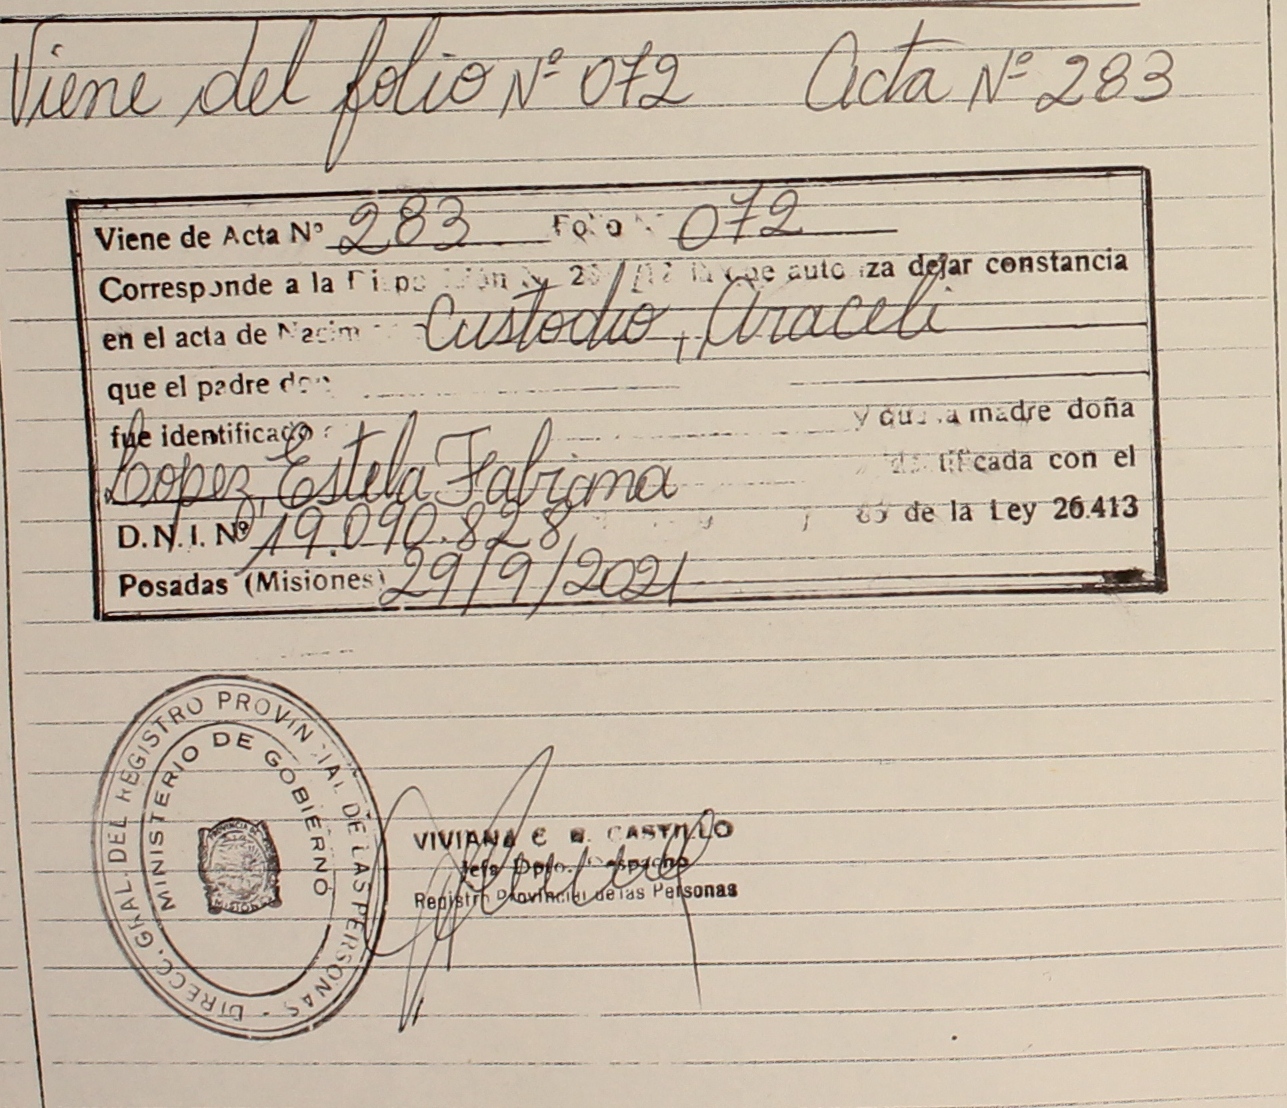 Viene del folio Nº 072 Acta Nº 283
Viene de Acta Nº 283 Folio 072
Corresponde a la que autoriza dejar constancia
en el acta de Custodio, Araceli
que el padre don
fue identificado y que la madre doña
Lopez, Estela Fabiana identificada con el
D.N.I. Nº 19.090.828, de la Ley 26.413
Posadas (Misiones) 29/9/2021
DIRECC. GRAL. DEL REGISTRO PROVINCIAL DE LAS PERSONAS -
MINISTERIO DE GOBIERNO
VIVIANA E B. CASTILLO
Jefa Dpto. Despacho
Registro Provincial de las Personas